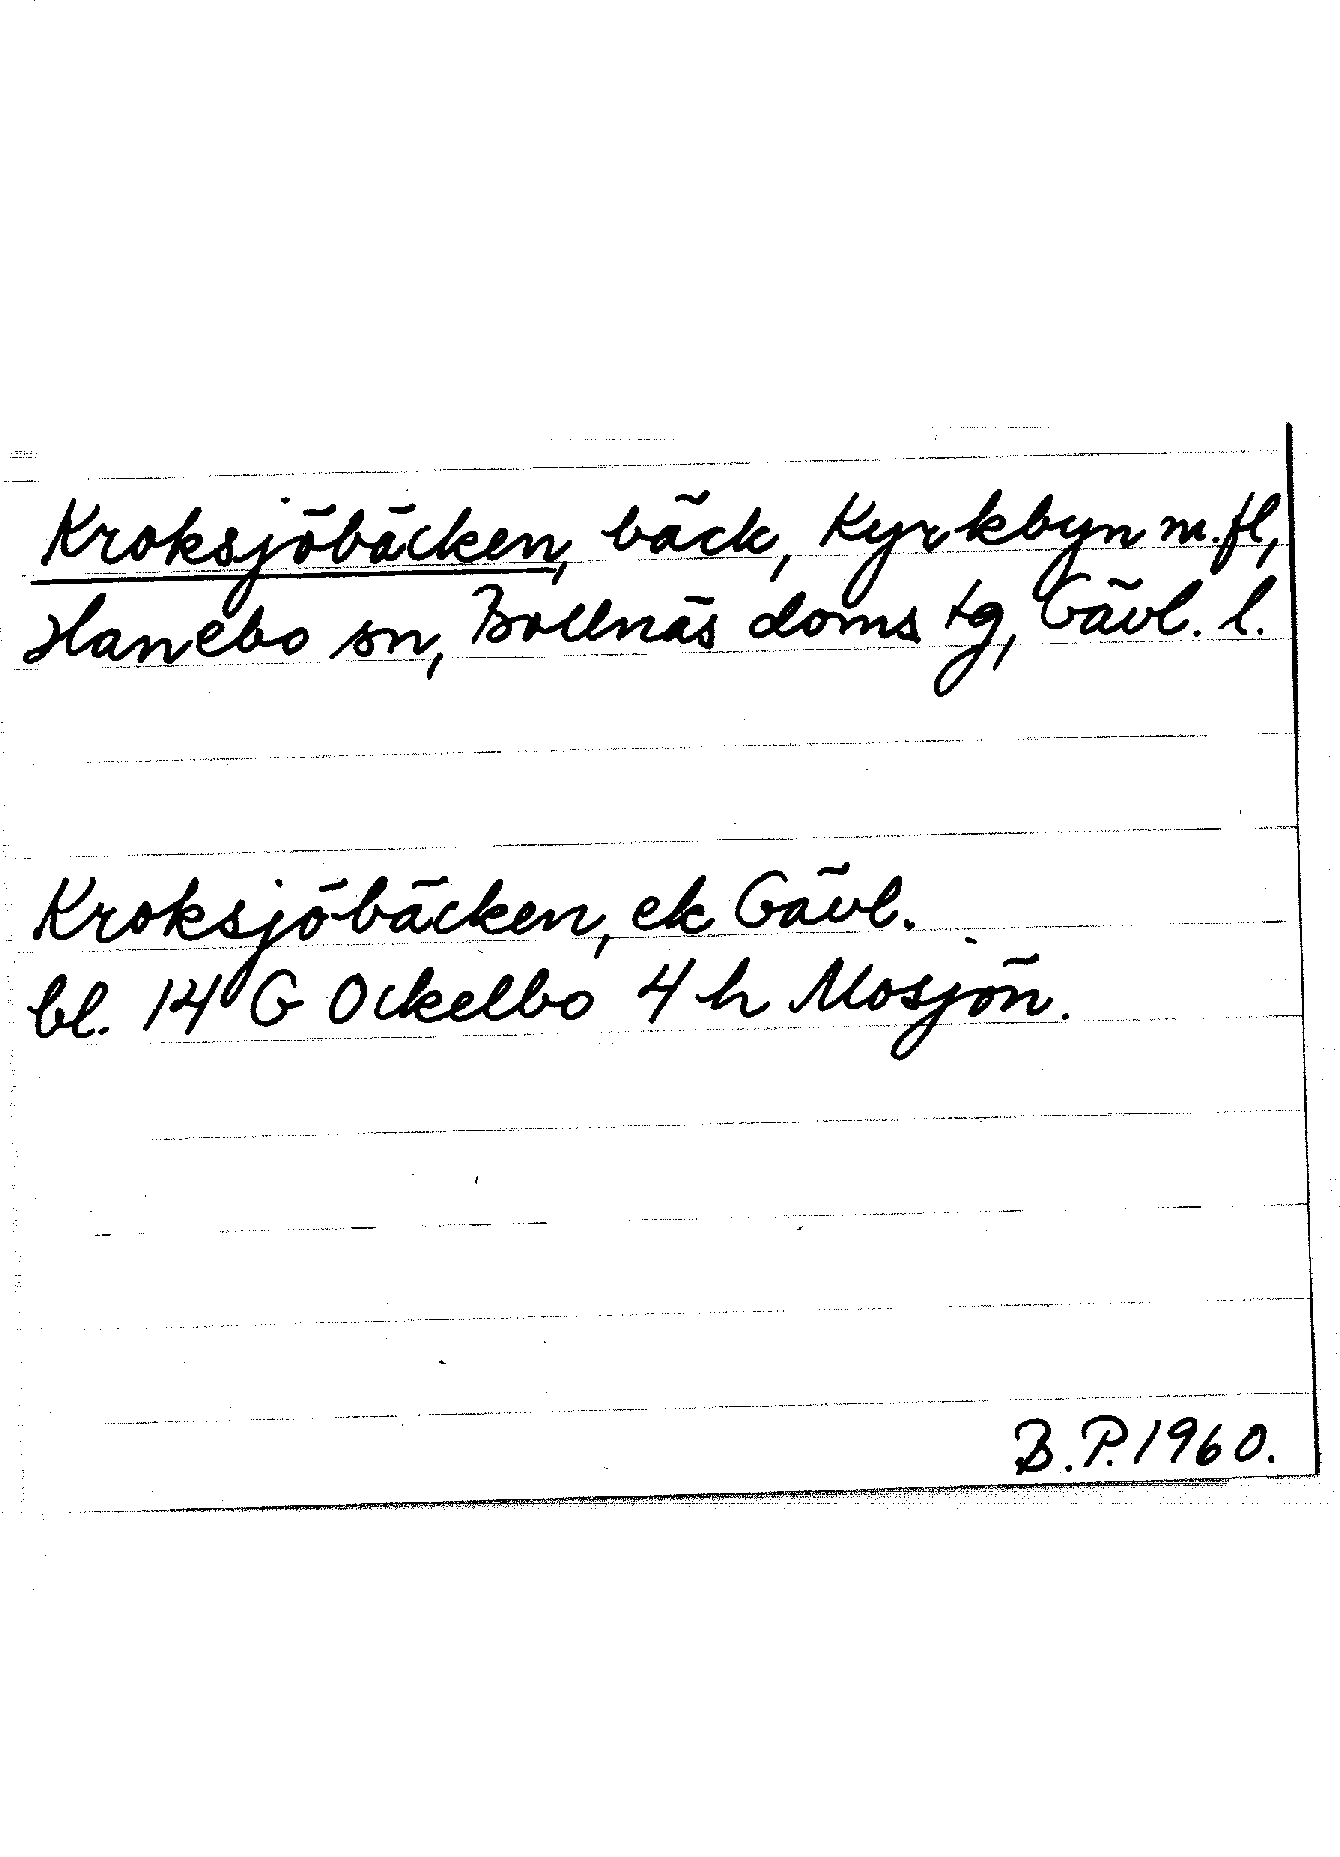 Kroksjöbäcken, bäck, Kyrkbyn m.fl,
Hanebo sn, Bollnäs doms tg, Gävl. l.
Kroksjöbäcken, ek Gävl.
bl. 14 G Ockelbo 4 h Mosjön.
B.P. 1960.